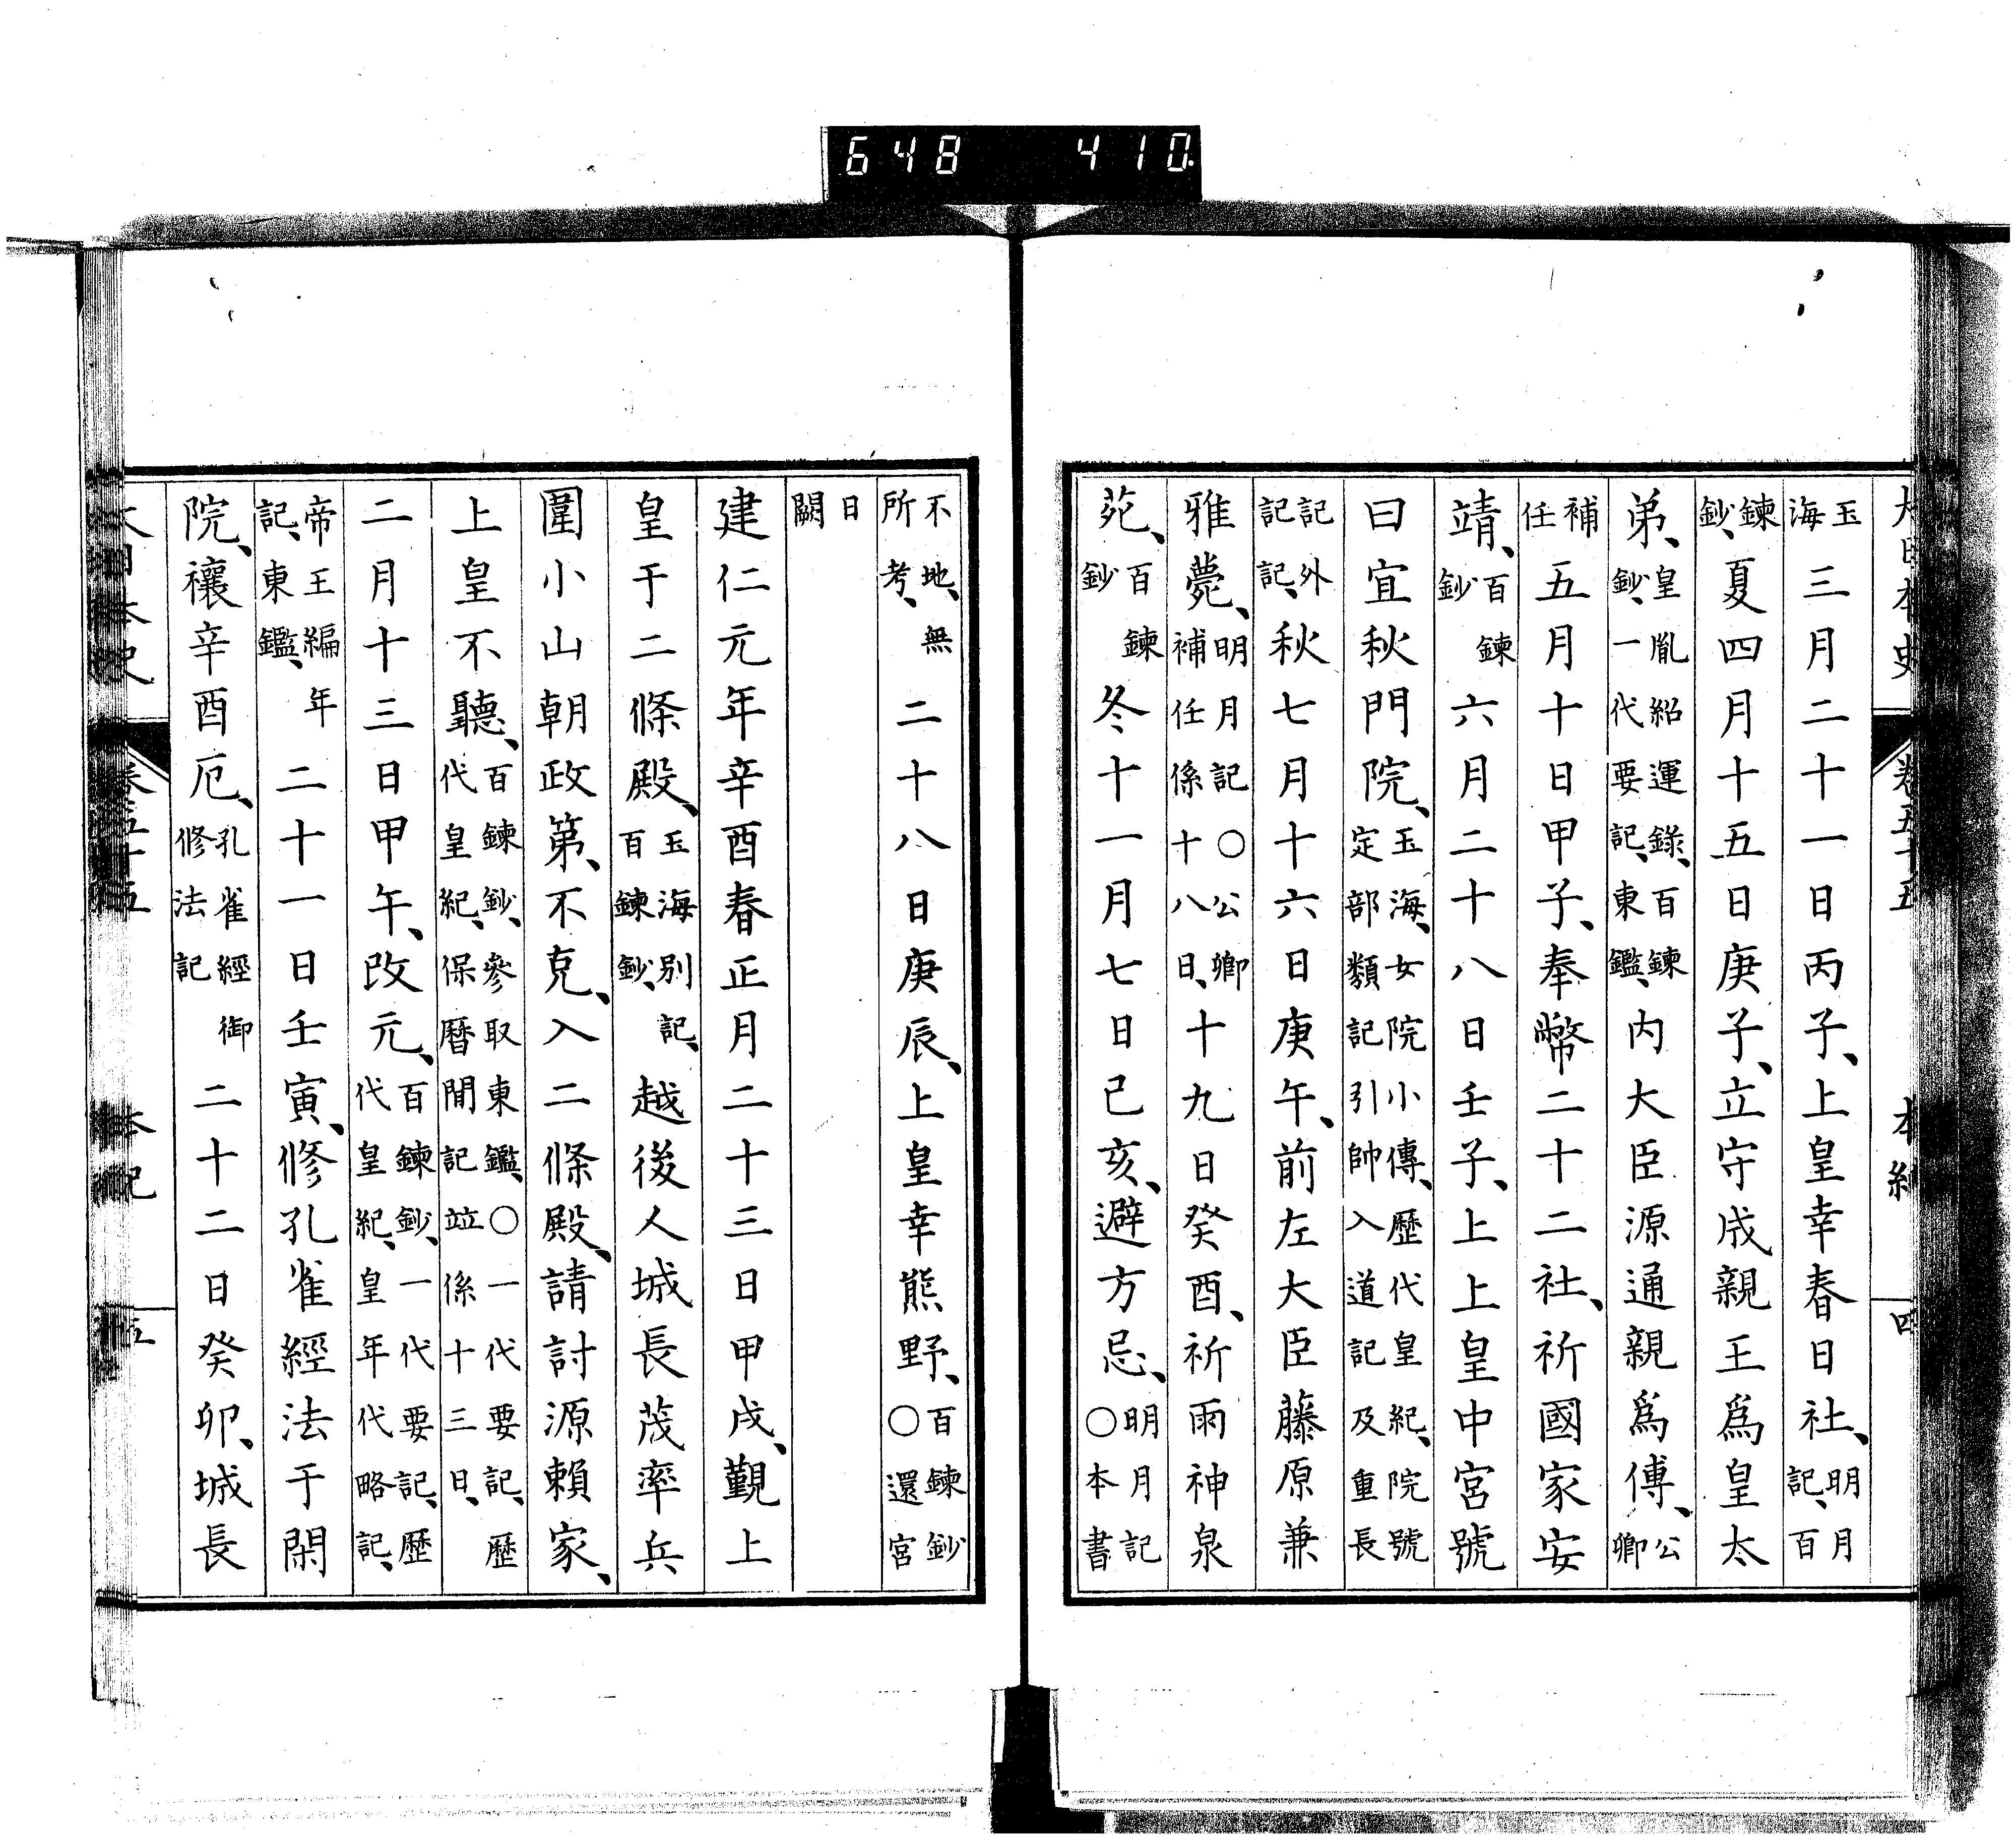 648 410
大日本史 卷五十五 本紀 四
玉海三月二十一日丙子、上皇幸春日社、明月記、百
鍊鈔、夏四月十五日庚子、立守成親王爲皇太
弟、皇胤紹運錄、百鍊鈔、一代要記、東鑑、內大臣源通親爲傅、公卿
補任五月十日甲子、奉幣二十二社、祈國家安
靖、百鍊鈔六月二十八日壬子、上上皇中宮號
曰宜秋門院、玉海、女院小傳、歷代皇紀、院號定部類記引帥入道記及重長
記外記記、秋七月十六日庚午、前左大臣藤原兼
雅薨、明月記○公卿補任係十八日、十九日癸酉、祈雨神泉
苑、百鍊鈔冬十一月七日己亥、避方忌、明月記○本書
不地、無所考、二十八日庚辰、上皇幸熊野、百鍊鈔○還宮
日闕
建仁元年辛酉春正月二十三日甲戌、覲上
皇于二條殿、玉海別記、百鍊鈔、越後人城長茂率兵
圍小山朝政第、不克、入二條殿、請討源賴家、
上皇不聽、百鍊鈔、參取東鑑、○一代要記、歷代皇紀、保曆間記竝係十三日、
二月十三日甲午、改元、百鍊鈔、一代要記、歷代皇紀、皇年代略記、
帝王編年記、東鑑、二十一日壬寅、修孔雀經法于閑
院、禳辛酉厄、孔雀經御修法記二十二日癸卯、城長
大日本史 卷五十五 本紀 五